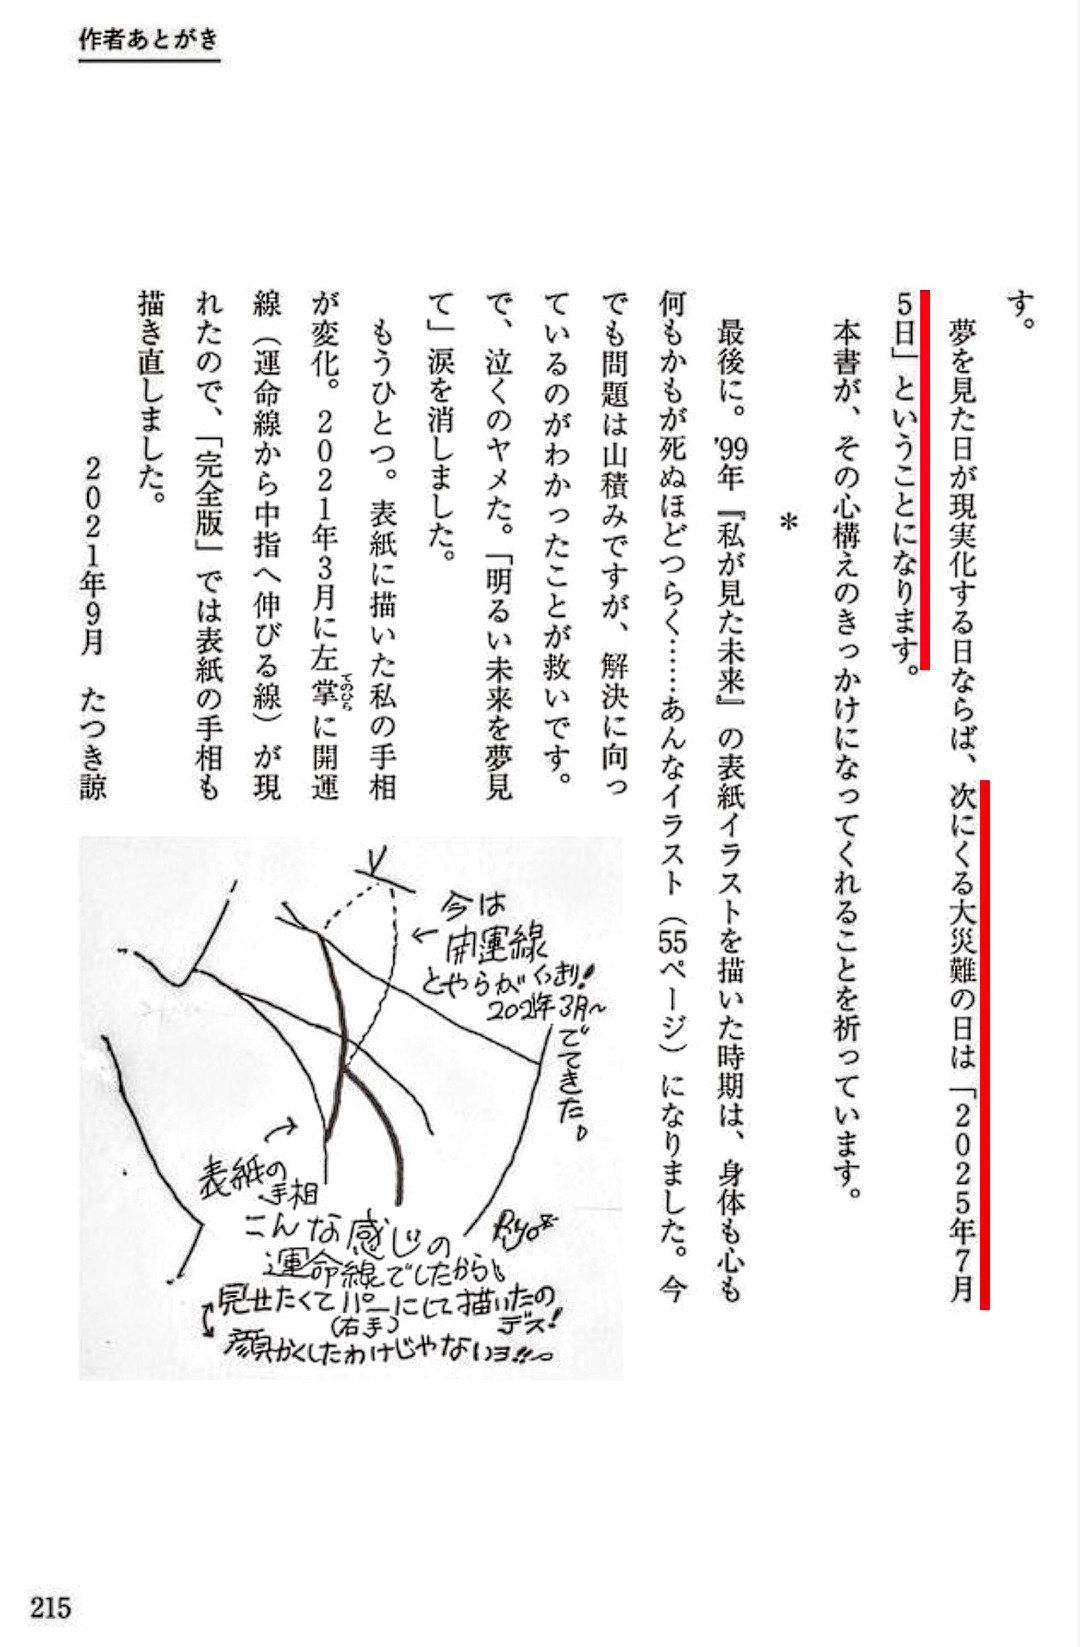 作者あとがき
す。
夢を見た日が現実化する日ならば、次にくる大災難の日は「2025年7月
5日」ということになります。
本書が、その心構えのきっかけになってくれることを祈っています。
＊
最後に。'99年『私が見た未来』の表紙イラストを描いた時期は、身体も心も
何もかもが死ぬほどつらく……あんなイラスト（55ページ）になりました。今
でも問題は山積みですが、解決に向っ
ているのがわかったことが救いです。
で、泣くのヤメた。「明るい未来を夢見
て」涙を消しました。
もうひとつ。表紙に描いた私の手相
が変化。2021年3月に左掌に開運
てのひら
線（運命線から中指へ伸びる線）が現
れたので、「完全版」では表紙の手相も
描き直しました。
2021年9月　たつき諒
今は
←開運線
とやらがくっきり!
2021年3月〜
でてきた。
表紙の
手相
こんな感じの
運命線でしたから
見せたくてパーにして描いたの
（右手）
デス!
顔かくしたわけじゃないヨ!!
Ryo
215